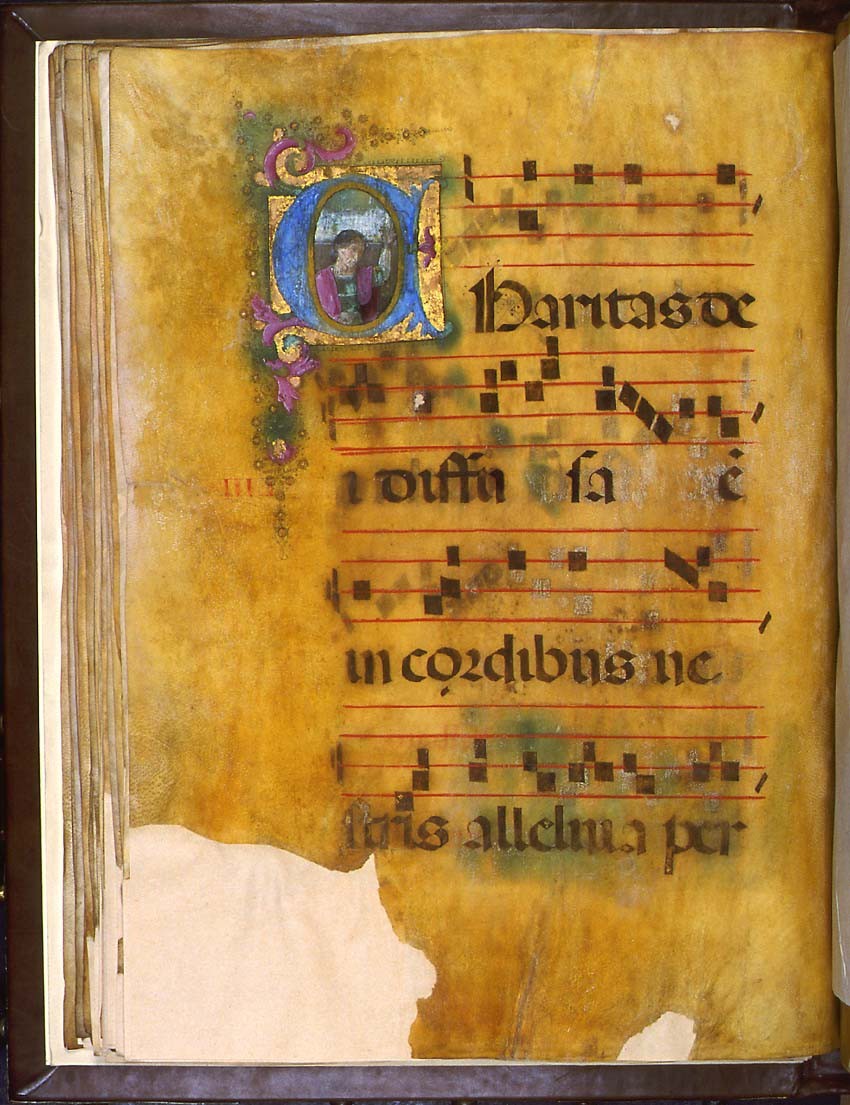 Charitas de
i diffu sa ē
in cordibus ne
stris alleluia per